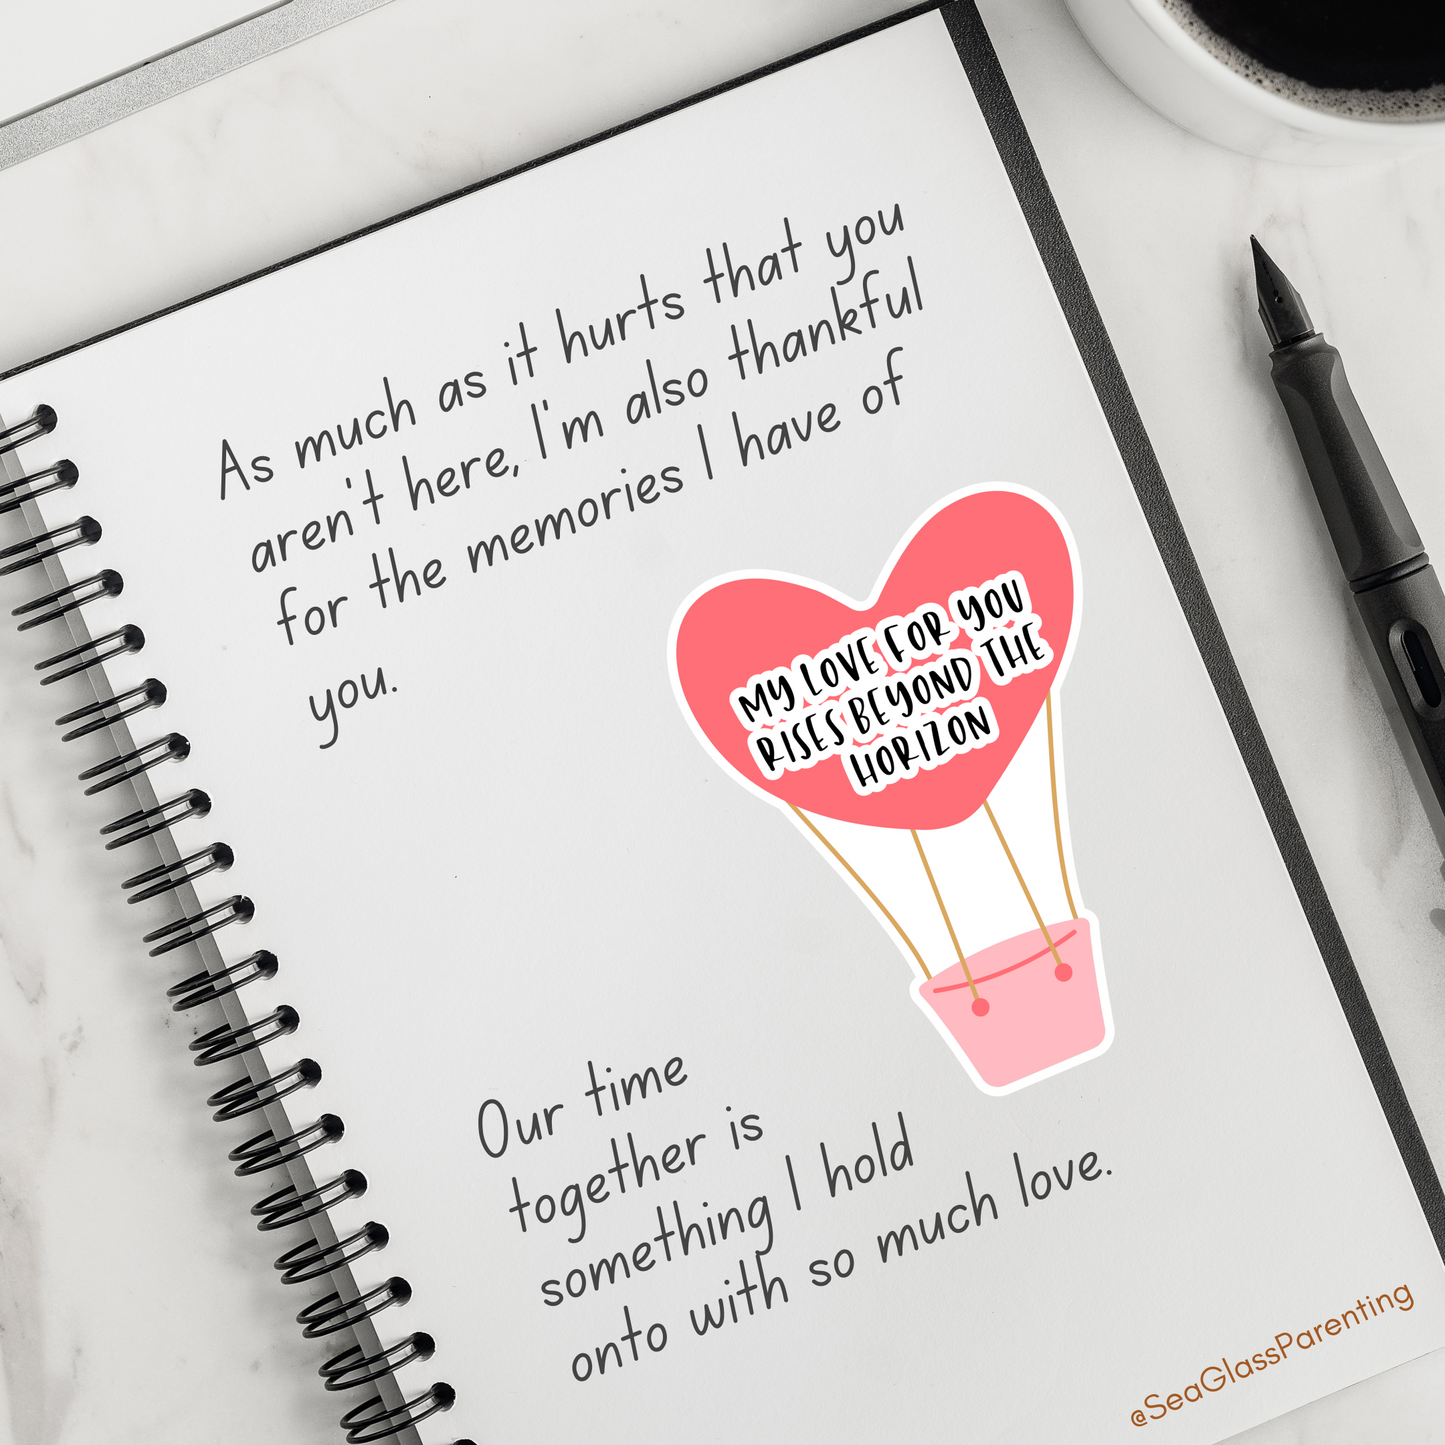 As much as it hurts that you
aren't here, I'm also thankful
for the memories I have of
you.
MY LOVE FOR YOU
RISES BEYOND THE
HORIZON
Our time
together is
something I hold
onto with so much love.
@SeaGlassParenting